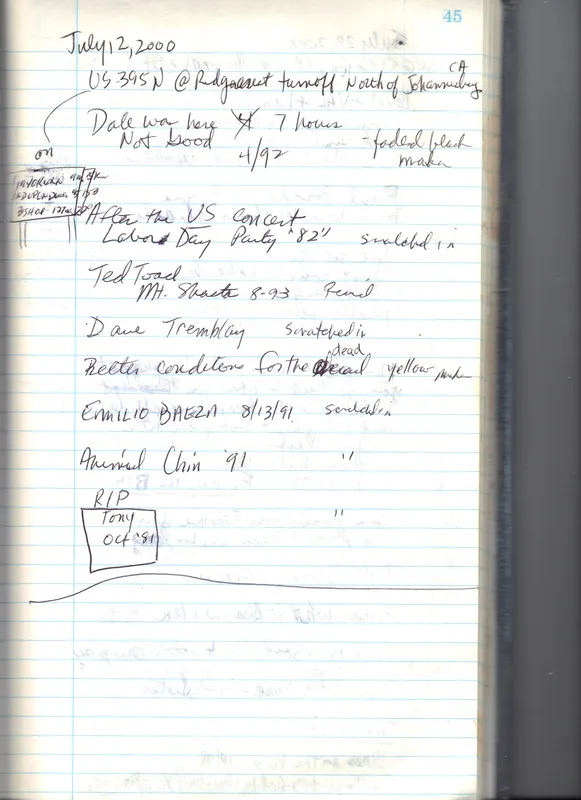 45
July 12, 2000
US 395 N @ Ridgecrest turnoff North of Johannesburg, CA
on
Dale was here 7 hours
Not Good 4/92 - faded black marker
INYOKERN
INDEPENDENCE
BISHOP
After the US concert
Labor Day Party "82" scratched in
Ted Toad
Mt. Shasta 8-93
Dave Tremblay scratched in
Better conditions for the dead yellow marker
EMILIO BAEZA 8/13/91 scratched in
Animal Chin '91 "
RIP
Tony "
Oct '81